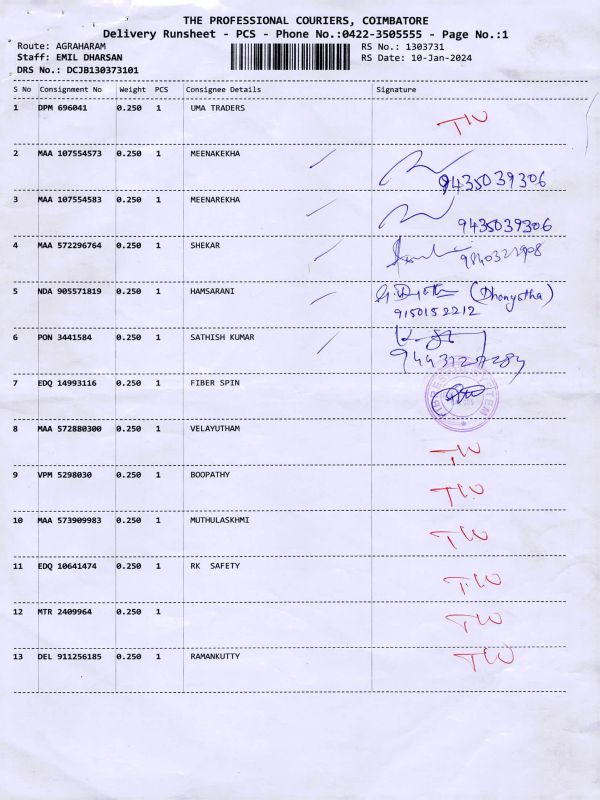 THE PROFESSIONAL COURIERS, COIMBATORE
Delivery Runsheet - PCS - Phone No.:0422-3505555 - Page No.:1
Route: AGRAHARAM RS No.: 1303731
Staff: EMIL DHARSAN RS Date: 10-Jan-2024
DRS No.: DCJB130373101
S No Consignment No Weight PCS Consignee Details Signature
1 DPM 696041 0.250 1 UMA TRADERS
TW
2 MAA 107554573 0.250 1 MEENAKEKHA
9435039306
3 MAA 107554583 0.250 1 MEENAREKHA
9435039306
4 MAA 572296764 0.250 1 SHEKAR
5 NDA 905571819 0.250 1 HAMSARANI
9150152212
6 PON 3441584 0.250 1 SATHISH KUMAR
7 EDQ 14993116 0.250 1 FIBER SPIN
8 MAA 572880300 0.250 1 VELAYUTHAM
TW
9 VPM 5298030 0.250 1 BOOPATHY
TW
10 MAA 573909983 0.250 1 MUTHULASKHMI
TW
11 EDQ 10641474 0.250 1 RK SAFETY
TW
12 MTR 2409964 0.250 1
TW
13 DEL 911256185 0.250 1 RAMANKUTTY
TW